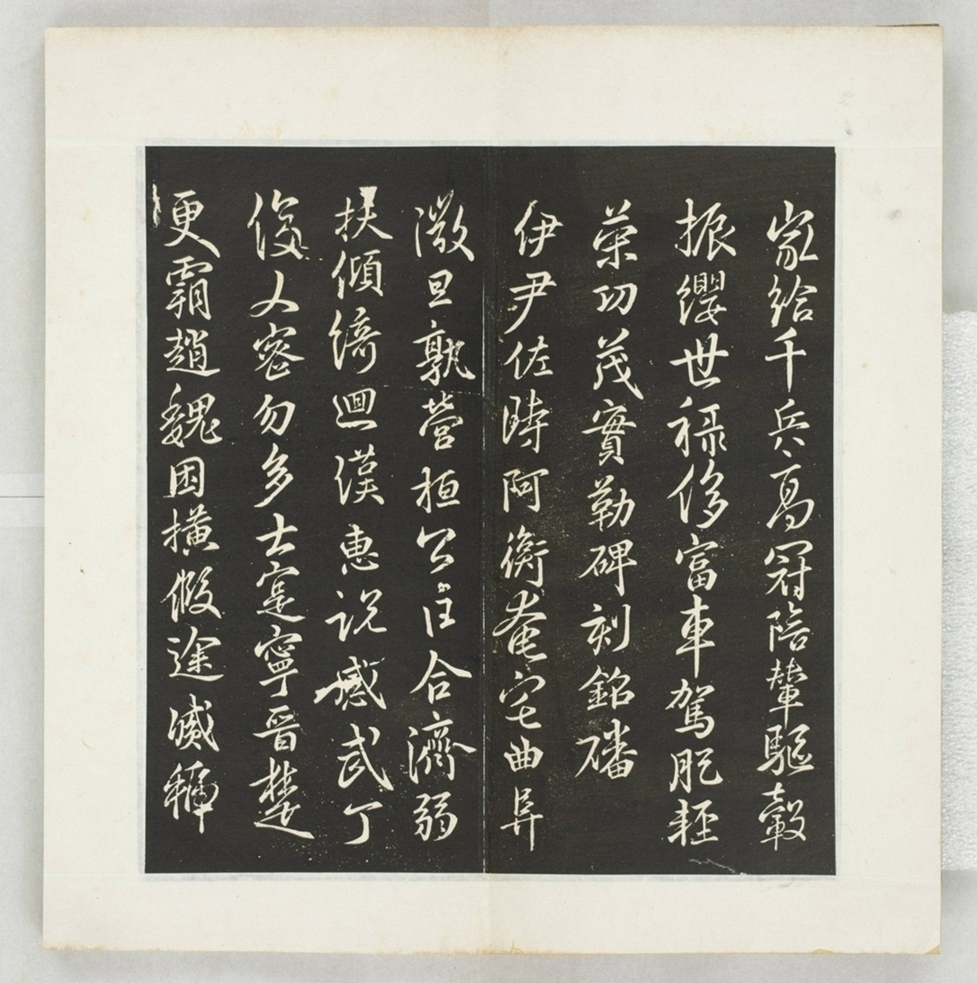 家給千兵高冠陪輦驅轂
振纓世祿侈富車駕肥輕
策功茂實勒碑刻銘磻
伊尹佐時阿衡奄宅曲阜
微旦孰營桓公匡合濟弱
扶傾綺迴漢惠說感武丁
俊乂密勿多士寔寧晉楚
更霸趙魏困橫假途滅虢